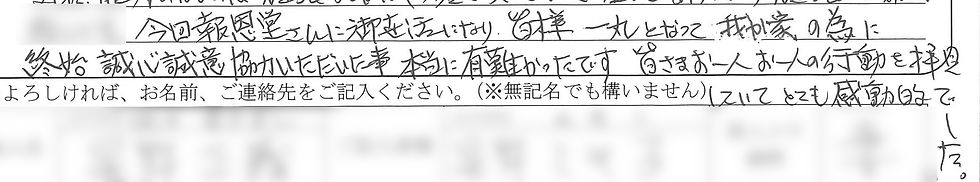 今回報恩堂さんに御世話になり 皆様 一丸となって 我が家の為に
終始 誠心誠意 協力いただいた事 本当に有難かったです 皆さまお一人お一人の行動を拝見
よろしければ、お名前、ご連絡先をご記入ください。(※無記名でも構いません)
していて とても感動的で
した。